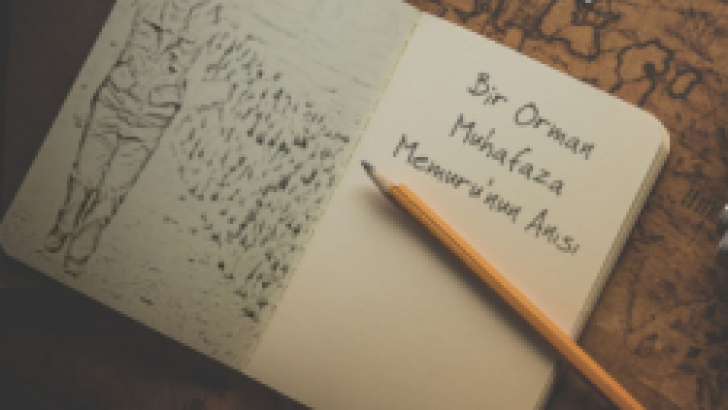 Bir Orman
Muhafaza
Memuru'nun Anısı